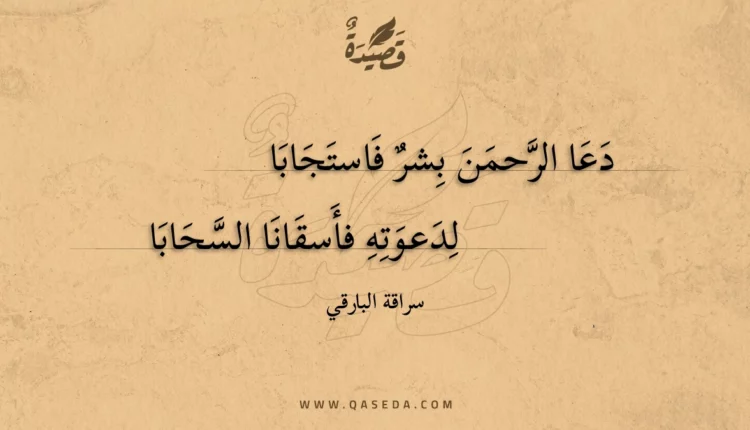 قَصِيْدَةٌ
دَعَا الرَّحمَنَ بِشرٌ فَاستَجَابَا
لِدَعوَتِهِ فأَسقَانَا السَّحَابَا
سراقة البارقي
WWW.QASEDA.COM